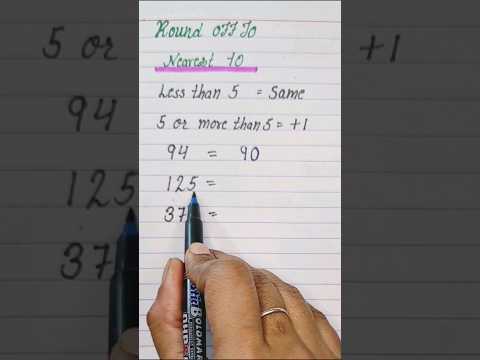 Round Off To
Nearest 10
Less than 5 = Same
5 or more than 5 = +1
94 = 90
125 =
37 =